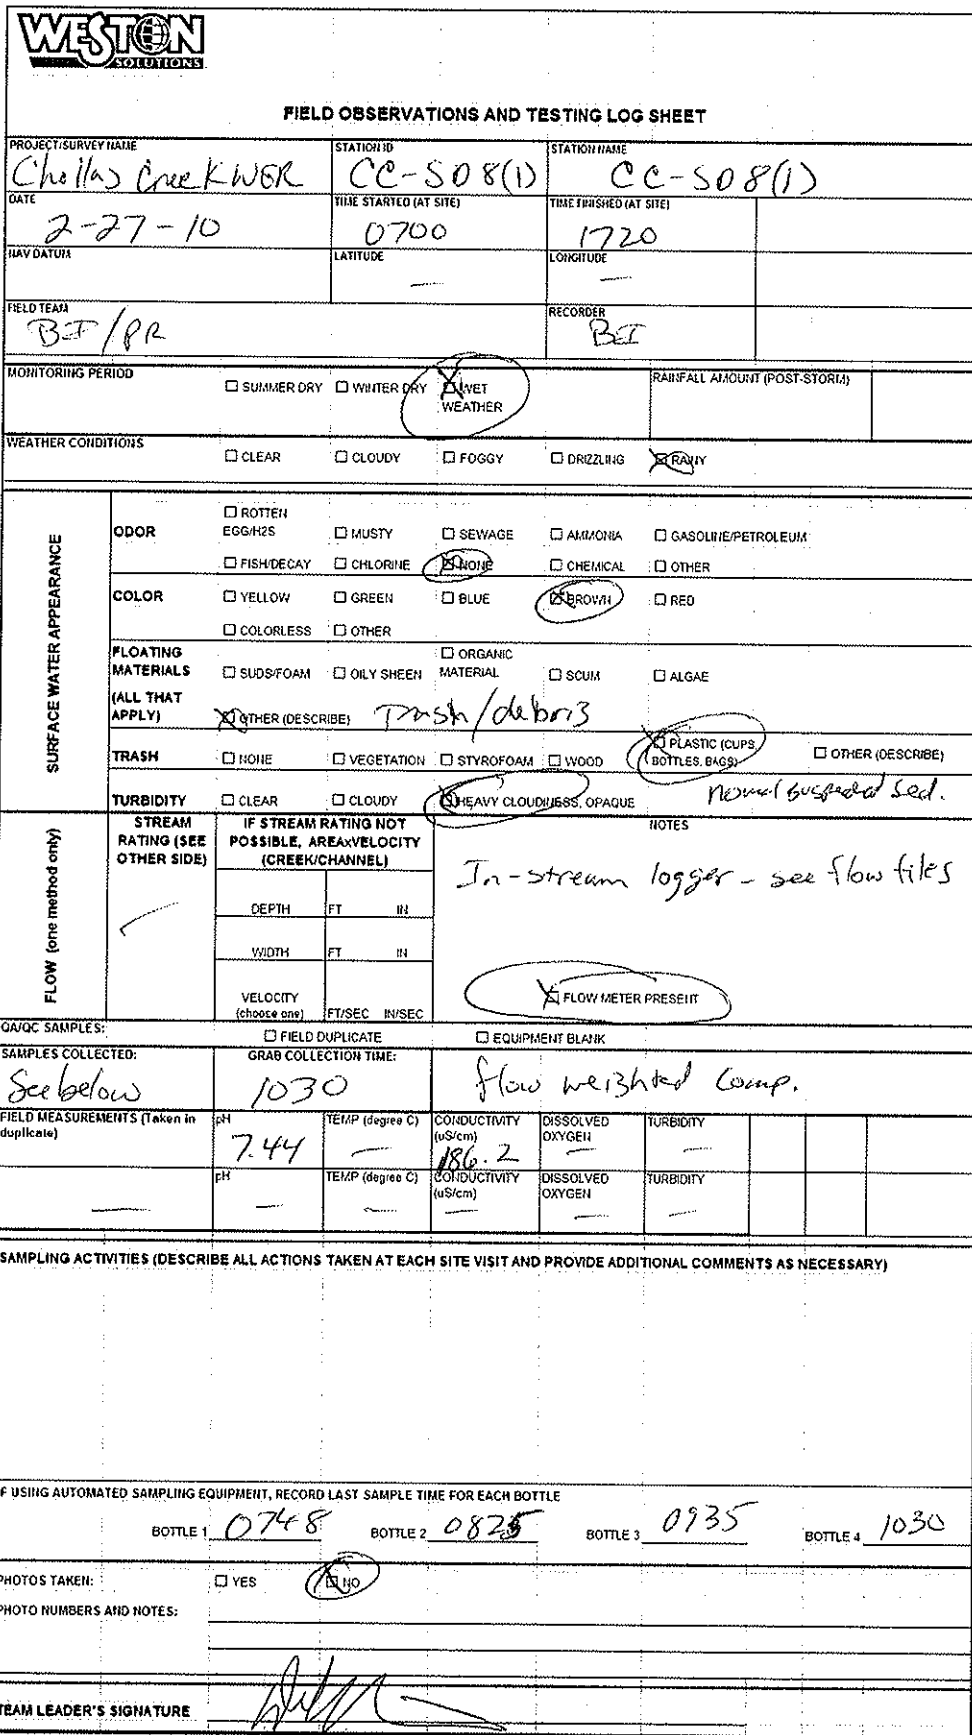 WESTON
SOLUTIONS
FIELD OBSERVATIONS AND TESTING LOG SHEET
PROJECT/SURVEY NAME STATION ID STATION NAME
Chollas Creek WER CC-SD8(1) CC-SD8(1)
DATE TIME STARTED (AT SITE) TIME FINISHED (AT SITE)
2-27-10 0700 1720
NAV DATUM LATITUDE LONGITUDE
— —
FIELD TEAM RECORDER
BI/PR BI
MONITORING PERIOD ☐ SUMMER DRY ☐ WINTER DRY ☒ WET WEATHER RAINFALL AMOUNT (POST-STORM)
WEATHER CONDITIONS ☐ CLEAR ☐ CLOUDY ☐ FOGGY ☐ DRIZZLING ☒ RAINY
SURFACE WATER APPEARANCE
ODOR ☐ ROTTEN EGG/H2S ☐ MUSTY ☐ SEWAGE ☐ AMMONIA ☐ GASOLINE/PETROLEUM
☐ FISH/DECAY ☐ CHLORINE ☒ NONE ☐ CHEMICAL ☐ OTHER
COLOR ☐ YELLOW ☐ GREEN ☐ BLUE ☒ BROWN ☐ RED
☐ COLORLESS ☐ OTHER
FLOATING MATERIALS (ALL THAT APPLY) ☐ SUDS/FOAM ☐ OILY SHEEN ☐ ORGANIC MATERIAL ☐ SCUM ☐ ALGAE
☒ OTHER (DESCRIBE) Trash/debris
TRASH ☐ NONE ☐ VEGETATION ☐ STYROFOAM ☐ WOOD ☒ PLASTIC (CUPS, BOTTLES, BAGS) ☐ OTHER (DESCRIBE)
TURBIDITY ☐ CLEAR ☐ CLOUDY ☒ HEAVY CLOUDINESS, OPAQUE normal suspended sed.
FLOW (one method only)
STREAM RATING (SEE OTHER SIDE) IF STREAM RATING NOT POSSIBLE, AREAxVELOCITY (CREEK/CHANNEL) NOTES
In-stream logger - see flow files
DEPTH FT IN
WIDTH FT IN
VELOCITY (choose one) FT/SEC IN/SEC ☒ FLOW METER PRESENT
QA/QC SAMPLES: ☐ FIELD DUPLICATE ☐ EQUIPMENT BLANK
SAMPLES COLLECTED: GRAB COLLECTION TIME:
See below 1030 flow weighted comp.
FIELD MEASUREMENTS (Taken in duplicate) pH TEMP (degree C) CONDUCTIVITY (uS/cm) DISSOLVED OXYGEN TURBIDITY
7.44 — 186.2 — —
pH TEMP (degree C) CONDUCTIVITY (uS/cm) DISSOLVED OXYGEN TURBIDITY
— — — — — —
SAMPLING ACTIVITIES (DESCRIBE ALL ACTIONS TAKEN AT EACH SITE VISIT AND PROVIDE ADDITIONAL COMMENTS AS NECESSARY)
F USING AUTOMATED SAMPLING EQUIPMENT, RECORD LAST SAMPLE TIME FOR EACH BOTTLE
BOTTLE 1 0748 BOTTLE 2 0825 BOTTLE 3 0935 BOTTLE 4 1030
PHOTOS TAKEN: ☐ YES ☒ NO
PHOTO NUMBERS AND NOTES:
TEAM LEADER'S SIGNATURE